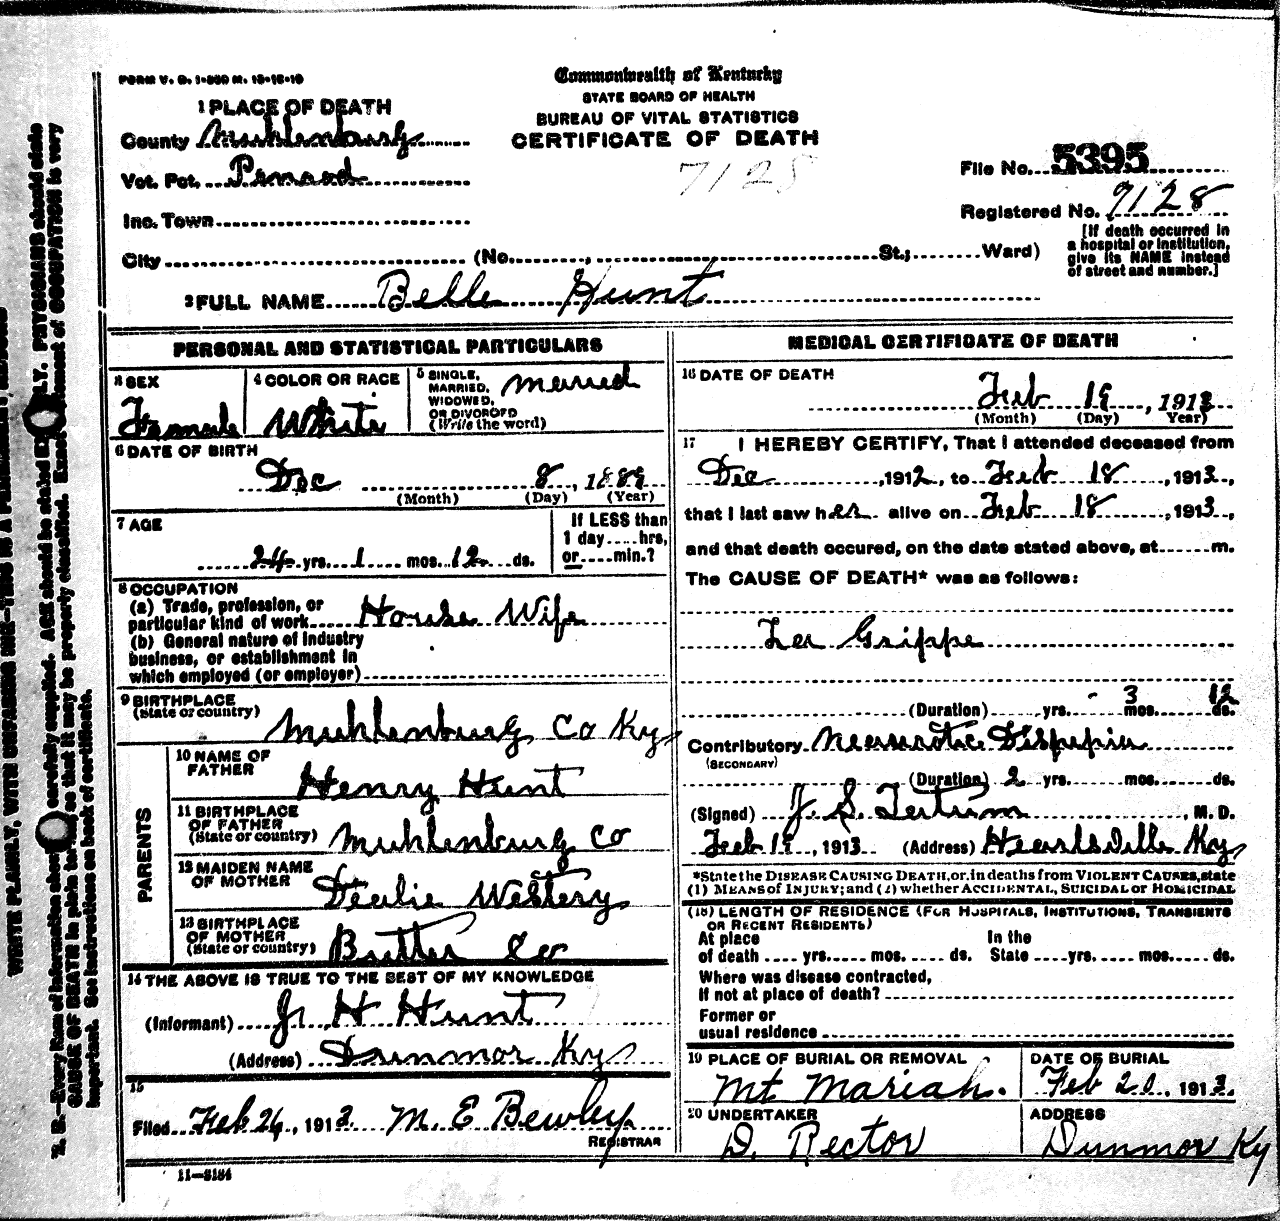 FORM V. D. 1-350 M. 12-16-10
Commonwealth of Kentucky
STATE BOARD OF HEALTH
BUREAU OF VITAL STATISTICS
CERTIFICATE OF DEATH
7128
1 PLACE OF DEATH
County Muhlenburg
Vot. Pct. Penrod
Inc. Town
City (No. , St.; Ward)
File No. 5395
Registered No. 7128
[If death occurred in
a hospital or institution,
give its NAME instead
of street and number.]
2 FULL NAME Belle Hunt
PERSONAL AND STATISTICAL PARTICULARS
3 SEX
Female
4 COLOR OR RACE
White
5 SINGLE, MARRIED, WIDOWED, OR DIVORCED (Write the word) Married
6 DATE OF BIRTH
Dec 8, 1888
(Month) (Day) (Year)
7 AGE
24 yrs. 1 mos. 12 ds.
If LESS than
1 day....hrs,
or....min.?
8 OCCUPATION
(a) Trade, profession, or
particular kind of work House Wife
(b) General nature of Industry
business, or establishment in
which employed (or employer)
9 BIRTHPLACE
(State or country) Muhlenburg Co Ky
PARENTS
10 NAME OF
FATHER Henry Hunt
11 BIRTHPLACE
OF FATHER
(State or country) Muhlenburg Co
12 MAIDEN NAME
OF MOTHER Dealie Westery
13 BIRTHPLACE
OF MOTHER
(State or country) Butler Co
14 THE ABOVE IS TRUE TO THE BEST OF MY KNOWLEDGE
(Informant) J H Hunt
(Address) Dunmor Ky
15
Filed Feb 26, 1913 M. E Bewley
REGISTRAR
11-2184
MEDICAL CERTIFICATE OF DEATH
16 DATE OF DEATH
Feb 19, 1913
(Month) (Day) Year)
17 I HEREBY CERTIFY, That I attended deceased from
Dec , 1912, to Feb 18 , 1913,
that I last saw her alive on Feb 18 , 1913,
and that death occured, on the date stated above, at m.
The CAUSE OF DEATH* was as follows:
La Grippe
(Duration) yrs. - 3 mos. 12 ds.
Contributory Neurotic Dispepia
(SECONDARY)
(Duration) 2 yrs. mos. ds.
(Signed) J. S. , M. D.
Feb 19, 1913 (Address) Ky
*State the DISEASE CAUSING DEATH, or, in deaths from VIOLENT CAUSES, state
(1) MEANS of INJURY; and (2) whether ACCIDENTAL, SUICIDAL or HOMICIDAL
(18) LENGTH OF RESIDENCE (FOR HOSPITALS, INSTITUTIONS, TRANSIENTS
OR RECENT RESIDENTS)
At place
of death .... yrs. mos. ds.
In the
State ....yrs. mos. ds.
Where was disease contracted,
If not at place of death?
Former or
usual residence
19 PLACE OF BURIAL OR REMOVAL
Mt Mariah.
DATE OF BURIAL
Feb 20, 1913.
20 UNDERTAKER
D. Rector
ADDRESS
Dunmor Ky